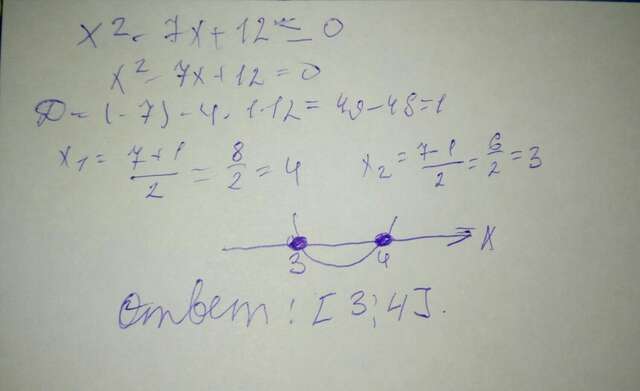 x² - 7x + 12 ≤ 0
x² - 7x + 12 = 0
D = (-7) - 4 · 1 · 12 = 49 - 48 = 1
x₁ = (7+1)/2 = 8/2 = 4 x₂ = (7-1)/2 = 6/2 = 3
3 4 x
Ответ: [3; 4].